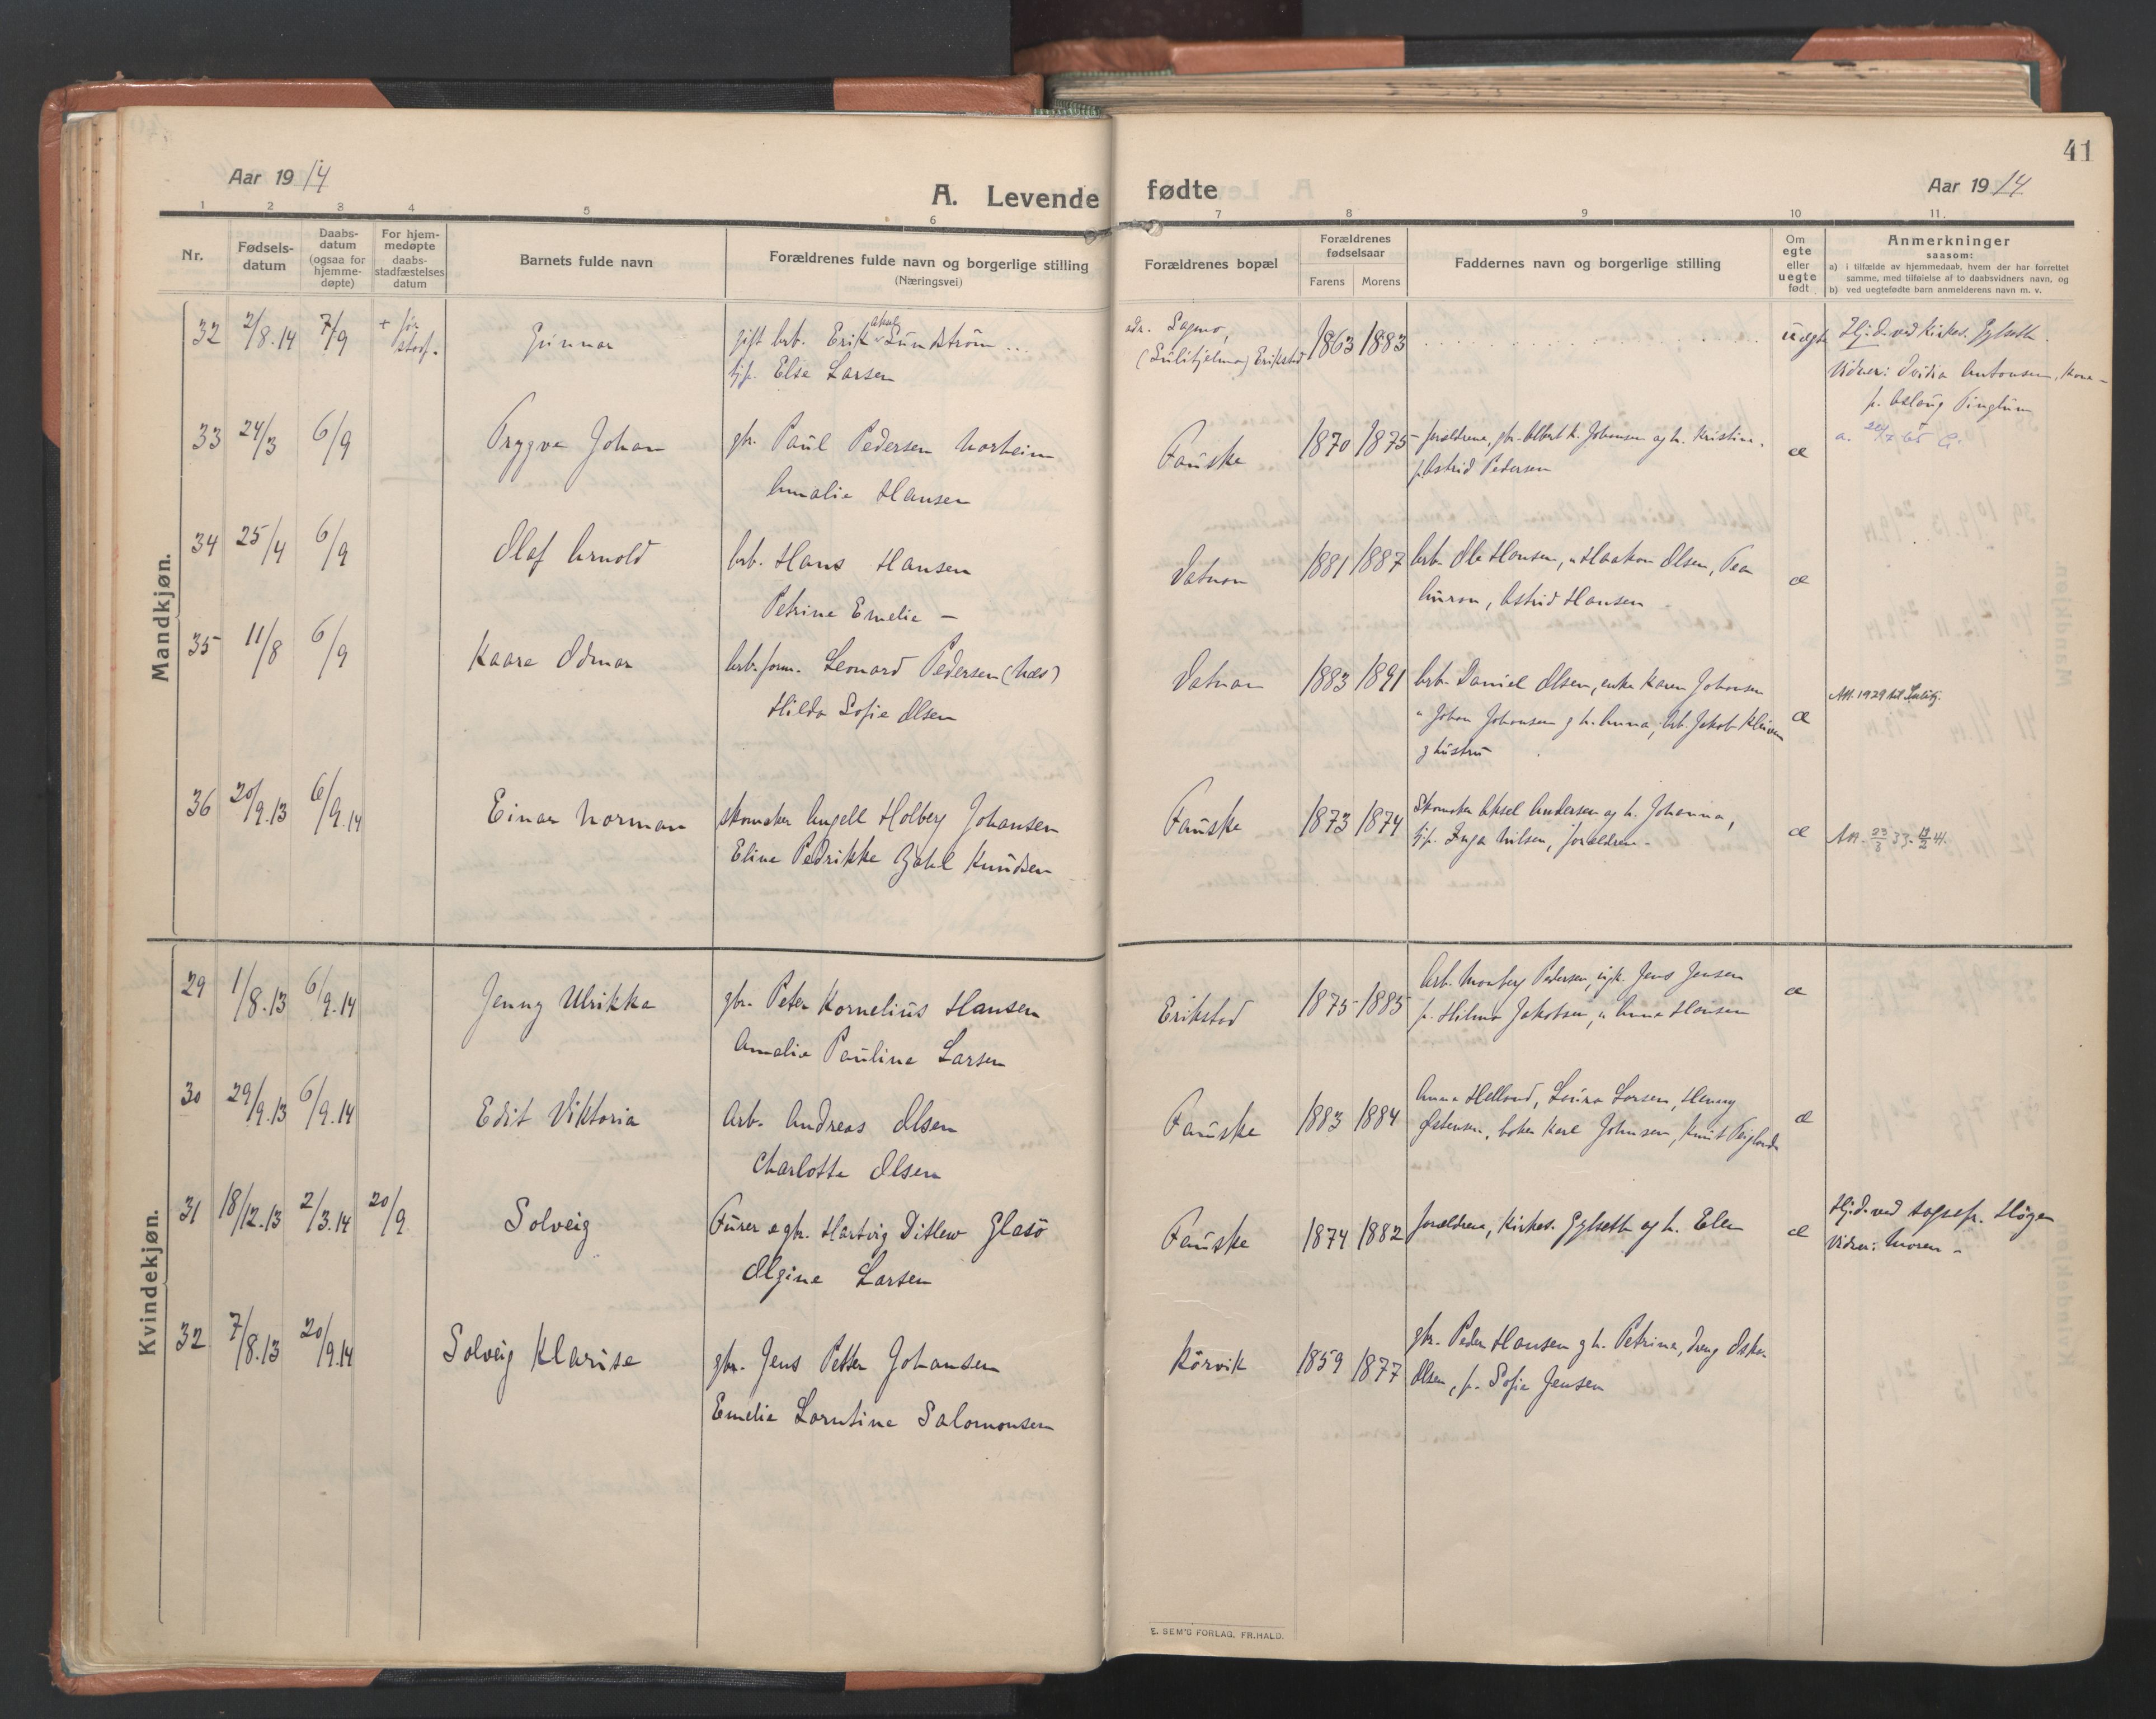 41
Aar 1914
A. Levende fødte
Aar 1914
1 2 3 4 5 6 7 8 9 10 11.
Nr.
Fødsels-
datum
Daabs-
datum
(ogsaa for
hjemme-
døpte)
For hjem-
medøpte
daabs-
stadfæstelses
datum
Barnets fulde navn
Forældrenes fulde navn og borgerlige stilling
(Næringsvei)
Forældrenes bopæl
Forældrenes
fødselsaar
Farens Morens
Faddernes navn og borgerlige stilling
Om
egte
eller
uegte
født
Anmerkninger
saasom:
a) i tilfælde av hjemmedaab, hvem der har forrettet
samme, med tilføielse af to daabsvidners navn, og
b) ved uegtefødte barn anmelderens navn m. v.
Mandkjøn.
32 2/8.14 7/9 + før stadf. Gunnar gift arb. Erik Lundström ... Sagmo, 1863 1883 uegte Hj.d. ved Kirkes. Gylseth.
tjp. Else Larsen (Sulitjelma) Erikstad
Vidner: Antonsen,
p. Aslaug
33 24/3 6/9 Trygve Johan gbr. Paul Pedersen Norheim Fauske 1870 1875 forældrene, gbr. Albert K. Johansen og h. Kristine. æ
Amalie Hansen p. Astrid Pedersen
34 25/4 6/9 Olaf Arnold Arb. Hans Hansen Vatnan 1881 1887 Arb. Ole Hansen, " Haakon Olsen, Tea æ
Petrine Emelie — , Astrid Hansen
35 11/8 6/9 Kaare Odmar Arb.form. Leonard Pedersen (Næs) Vatnan 1883 1891 Arb. Daniel Olsen, enke Karen Johansen æ Att. 1929 til Sulitj.
Hilda Sofie Olsen " Johan Johansen g h. Anna, Arb. Jakob
g hustru
36 20/9.13 6/9.14 Einar Norman skomaker Angell Holberg Johansen Fauske 1873 1874 Skomaker Aksel Andersen og h. Johanna, æ Att. 23/8 33. 41.
Eline Pedrikke Zahl Knudsen tjp. Inga Nilsen, forældrene.
Kvindekjøn.
29 1/8.13 6/9.14 Jenny Ulrikka gbr. Peter Kornelius Hansen Erikstad 1875 1885 Arb. Pedersen, ugk. Jens Jensen æ
Amalie Pauline Larsen p. Hilma Jakobsen, " Anna Hansen
30 29/9.13 6/9.14 Edit Viktoria Arb. Andreas Olsen Fauske 1883 1884 Anna Helland, Laura Larsen, Henny æ
Charlotte Olsen Østensen, baker Karl Johnsen, Knut
31 18/12.13 2/3.14 20/9 Solveig Furer o gbr. Hartvig Ditlew Glasö Fauske 1874 1882 forældrene, Kirkes. Gylseth og h. Elen æ Hj.d. ved sognepr. Høyer
Olgine Larsen Vidner: Moren -
32 7/8.13 20/9.14 Solveig Klarise gbr. Jens Petter Johansen Körvik 1859 1877 gbr. Peder Hansen g h. Petrine, dreng Oskar
Emelie Lorntine Salomonsen Olsen, p. Sofie Jensen
E. SEM'S FORLAG, FR.HALD.